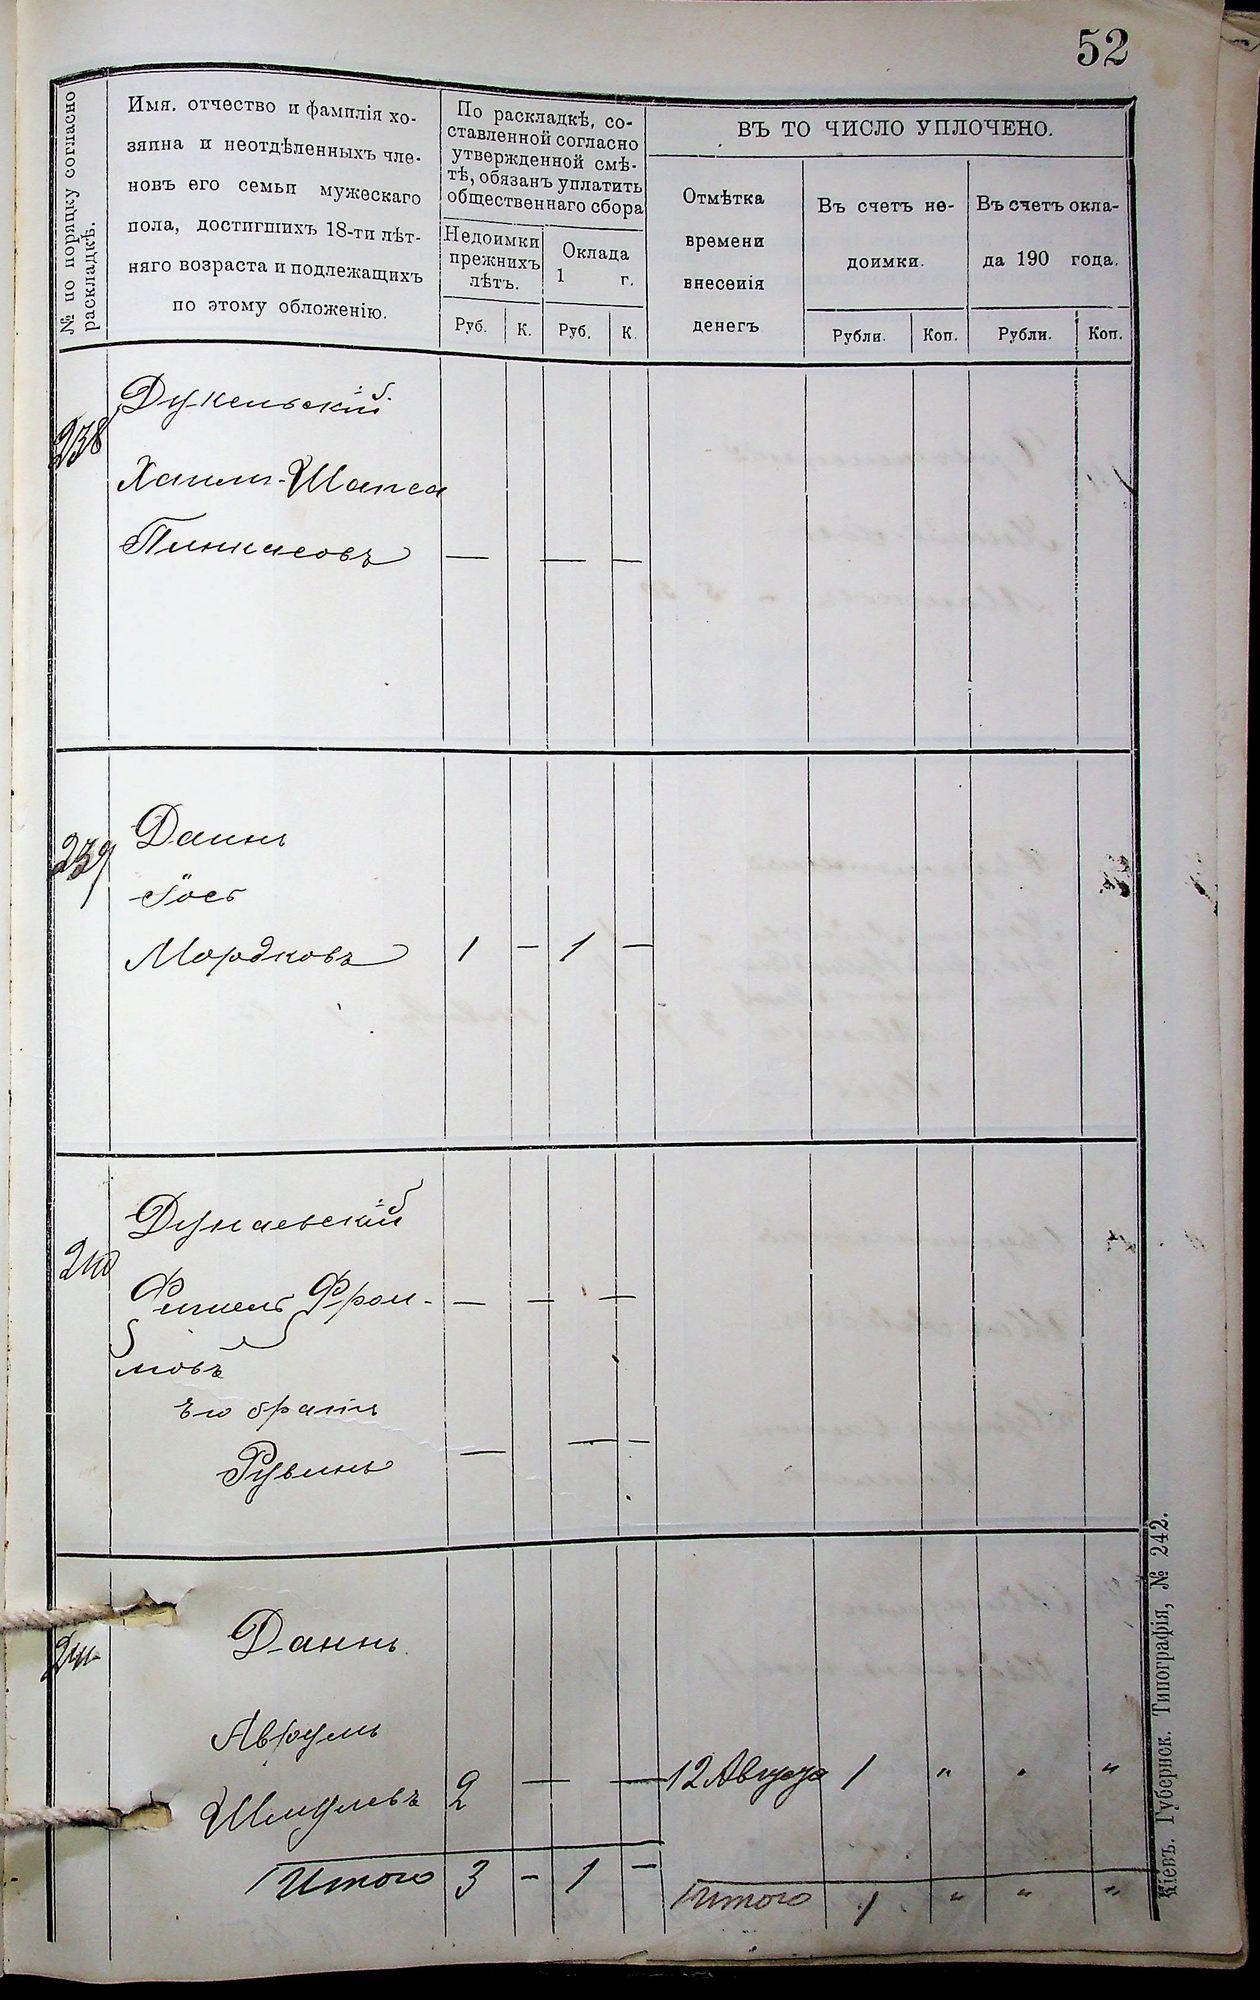 52
№ по порядку согласно
раскладкѣ.
Имя. отчество и фамилія хо-
зяина и неотдѣленныхъ чле-
новъ его семьи мужескаго
пола, достигшихъ 18-ти лѣт-
няго возраста и подлежащихъ
по этому обложенію.
По раскладкѣ, со-
ставленной согласно
утвержденной смѣ-
тѣ, обязанъ уплатить
общественнаго сбора
Недоимки
прежнихъ
лѣтъ.
Оклада
1 г.
Руб. К. Руб. К.
ВЪ ТО ЧИСЛО УПЛОЧЕНО.
Отмѣтка
времени
внесенія
денегъ
Въ счетъ не-
доимки.
Въ счетъ окла-
да 190 года.
Рубли. Коп. Рубли. Коп.
238 Дукельскій
Хаим-Шапса
Пинкасовъ — — —
239 Даинъ
Іось
Мордковъ 1 — 1 —
240 Дунаевскій
Фишель Фрои- — — —
мовъ
Его братъ
Рувинъ — — —
241 Даинъ
Аврумъ
Шмулевъ 2 — — 12 Августа 1 " " "
Итого 3 - 1 — Итого 1 " " "
Кіевъ. Губернск. Типографія, № 242.